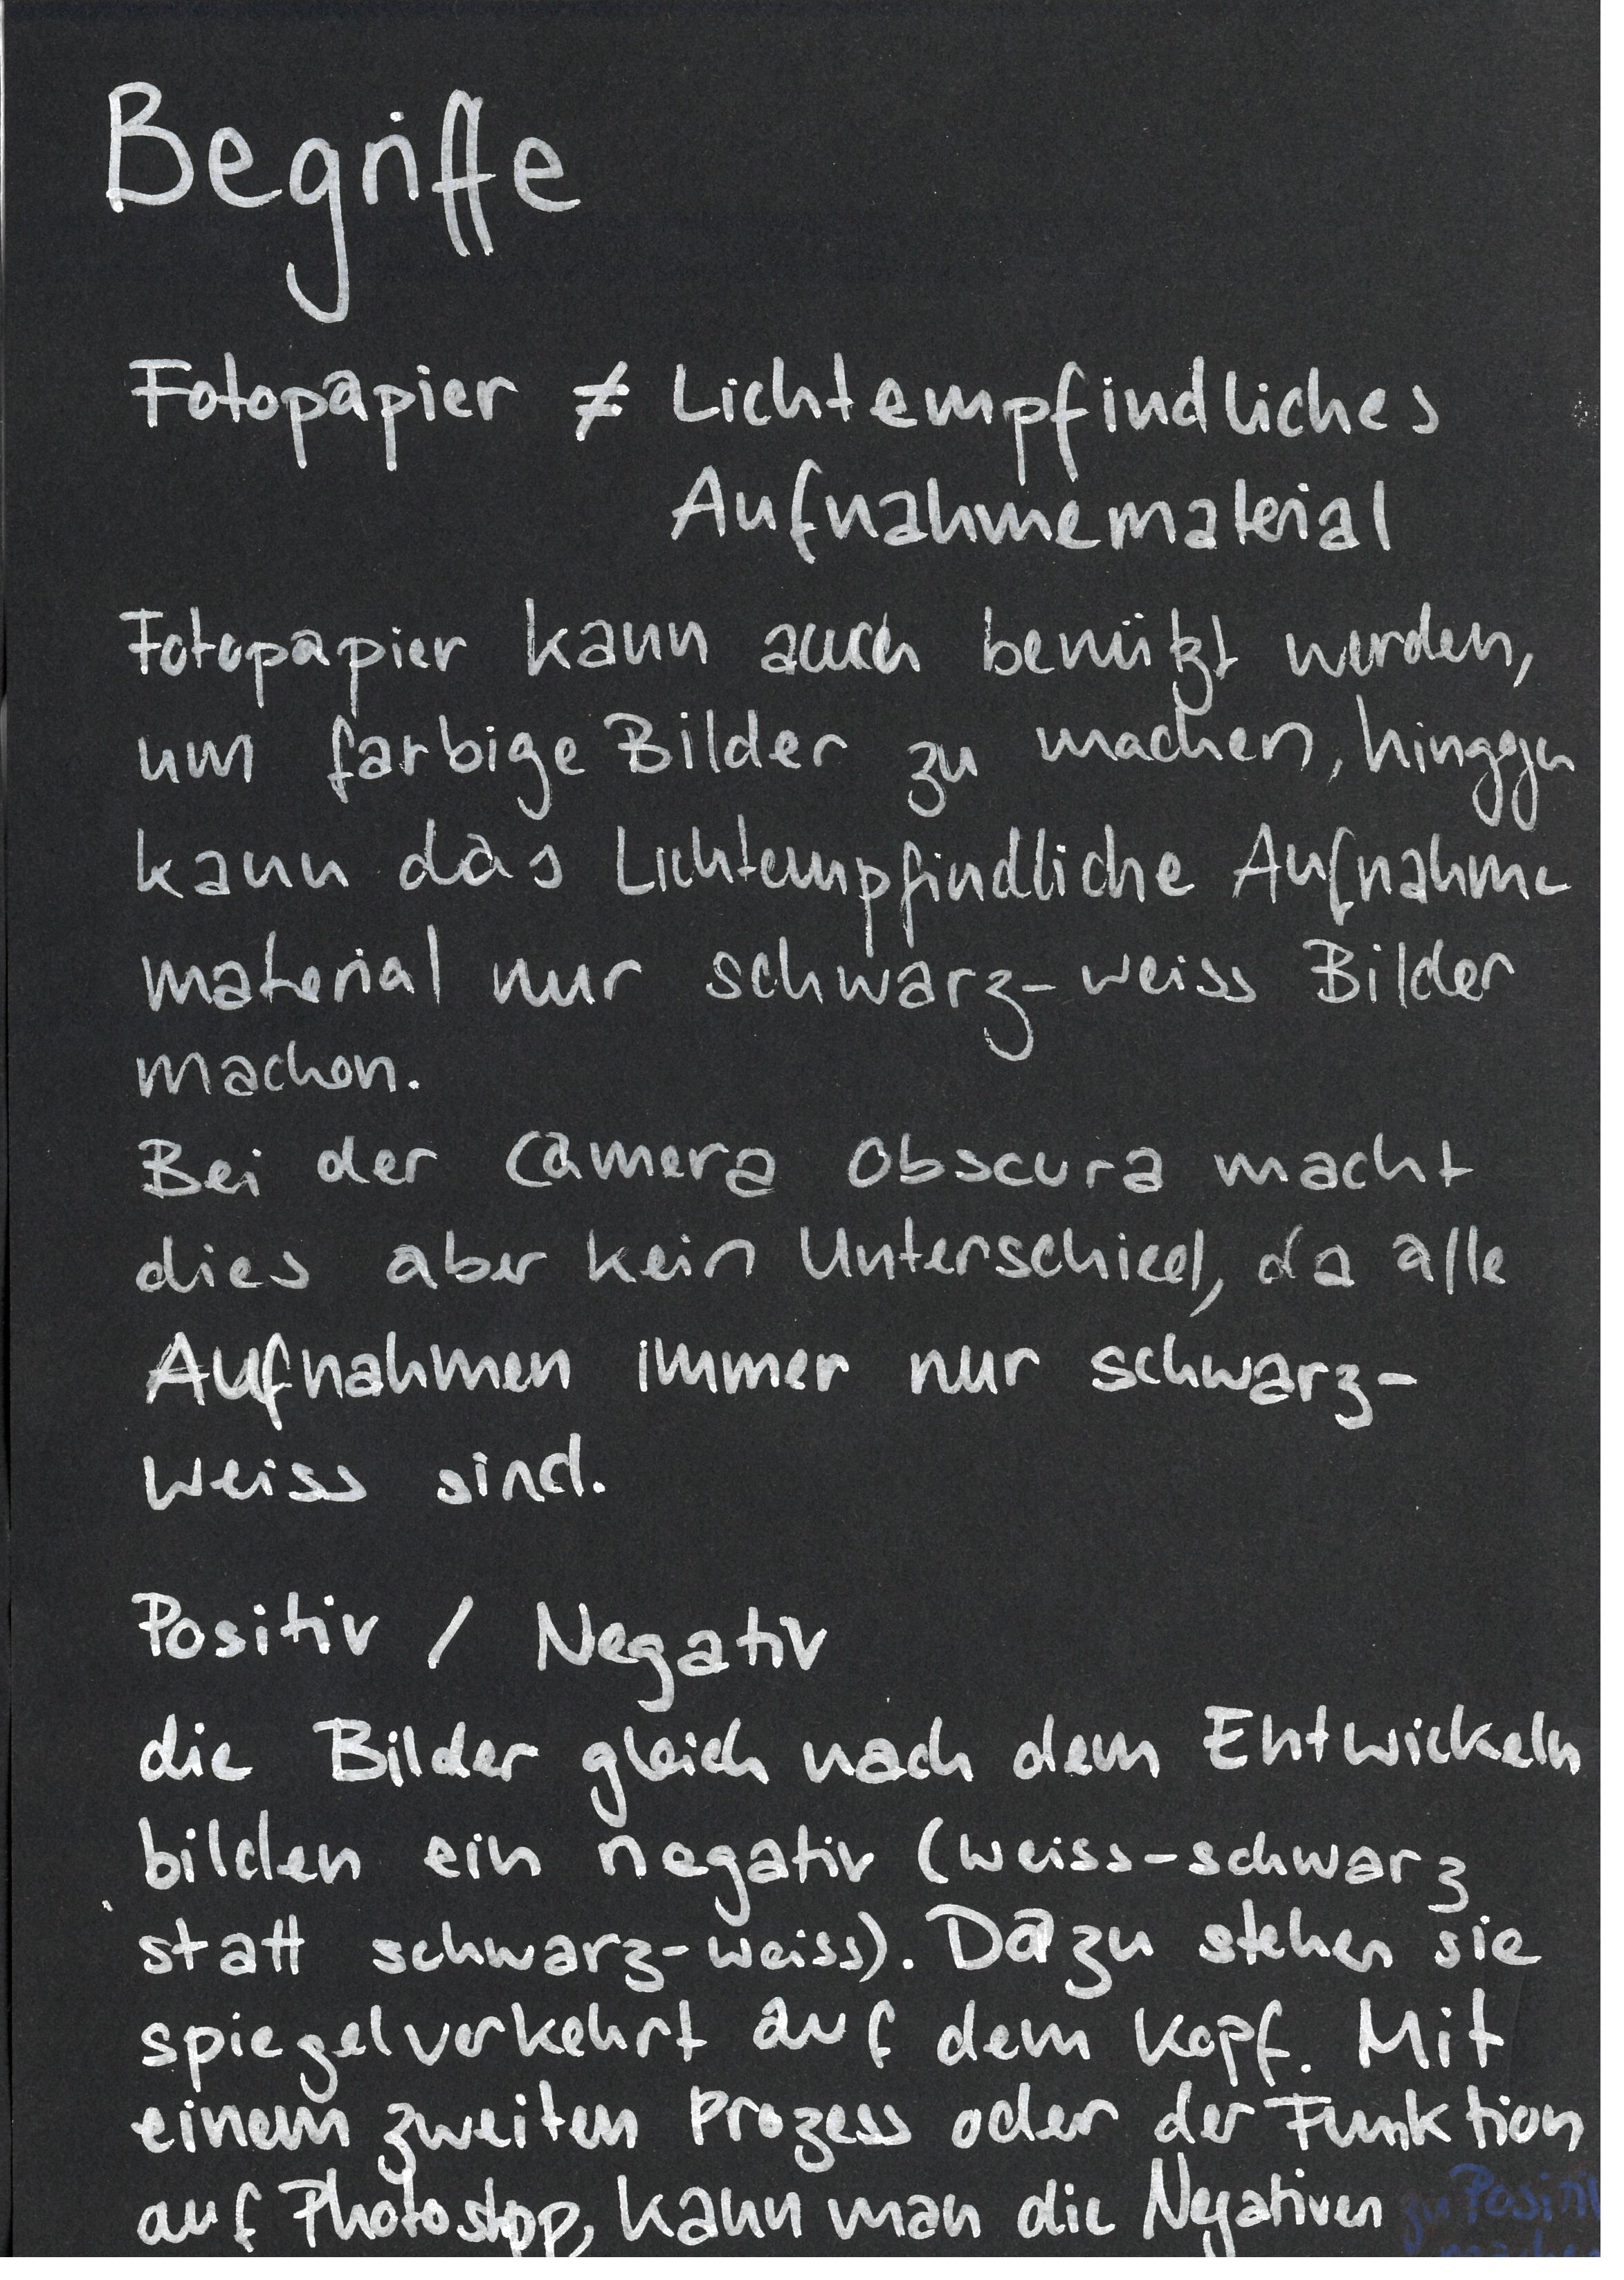 Begriffe
Fotopapier ≠ Lichtempfindliches
Aufnahmematerial
Fotopapier kann auch benützt werden,
um farbige Bilder zu machen, hingegen
kann das Lichtempfindliche Aufnahme
material nur schwarz-weiss Bilder
machen.
Bei der Camera Obscura macht
dies aber kein Unterschied, da alle
Aufnahmen immer nur schwarz-
weiss sind.
Positiv / Negativ
die Bilder gleich nach dem Entwickeln
bilden ein negativ (weiss-schwarz
statt schwarz-weiss). Dazu stehen sie
spiegelverkehrt auf dem Kopf. Mit
einem zweiten Prozess oder der Funktion
auf Photoshop, kann man die Negativen
zu